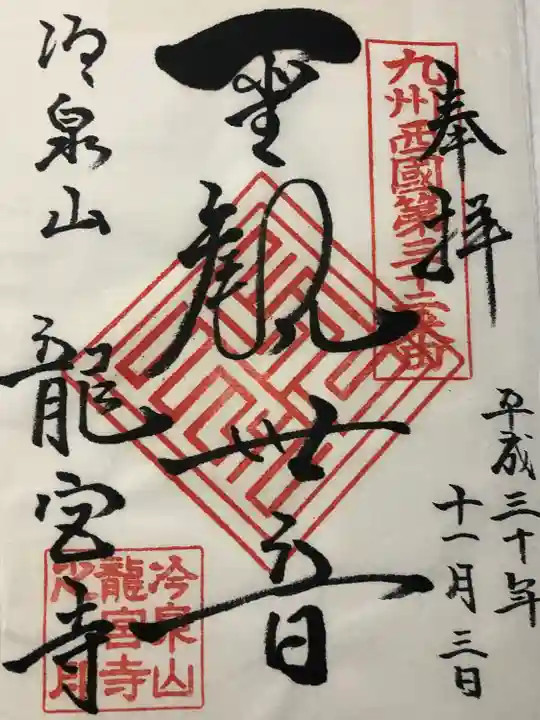 奉拝
九州西國第三十二番
平成三十年
十一月三日
聖観世音
冷泉山
龍宮寺
冷泉山
龍宮寺
之印